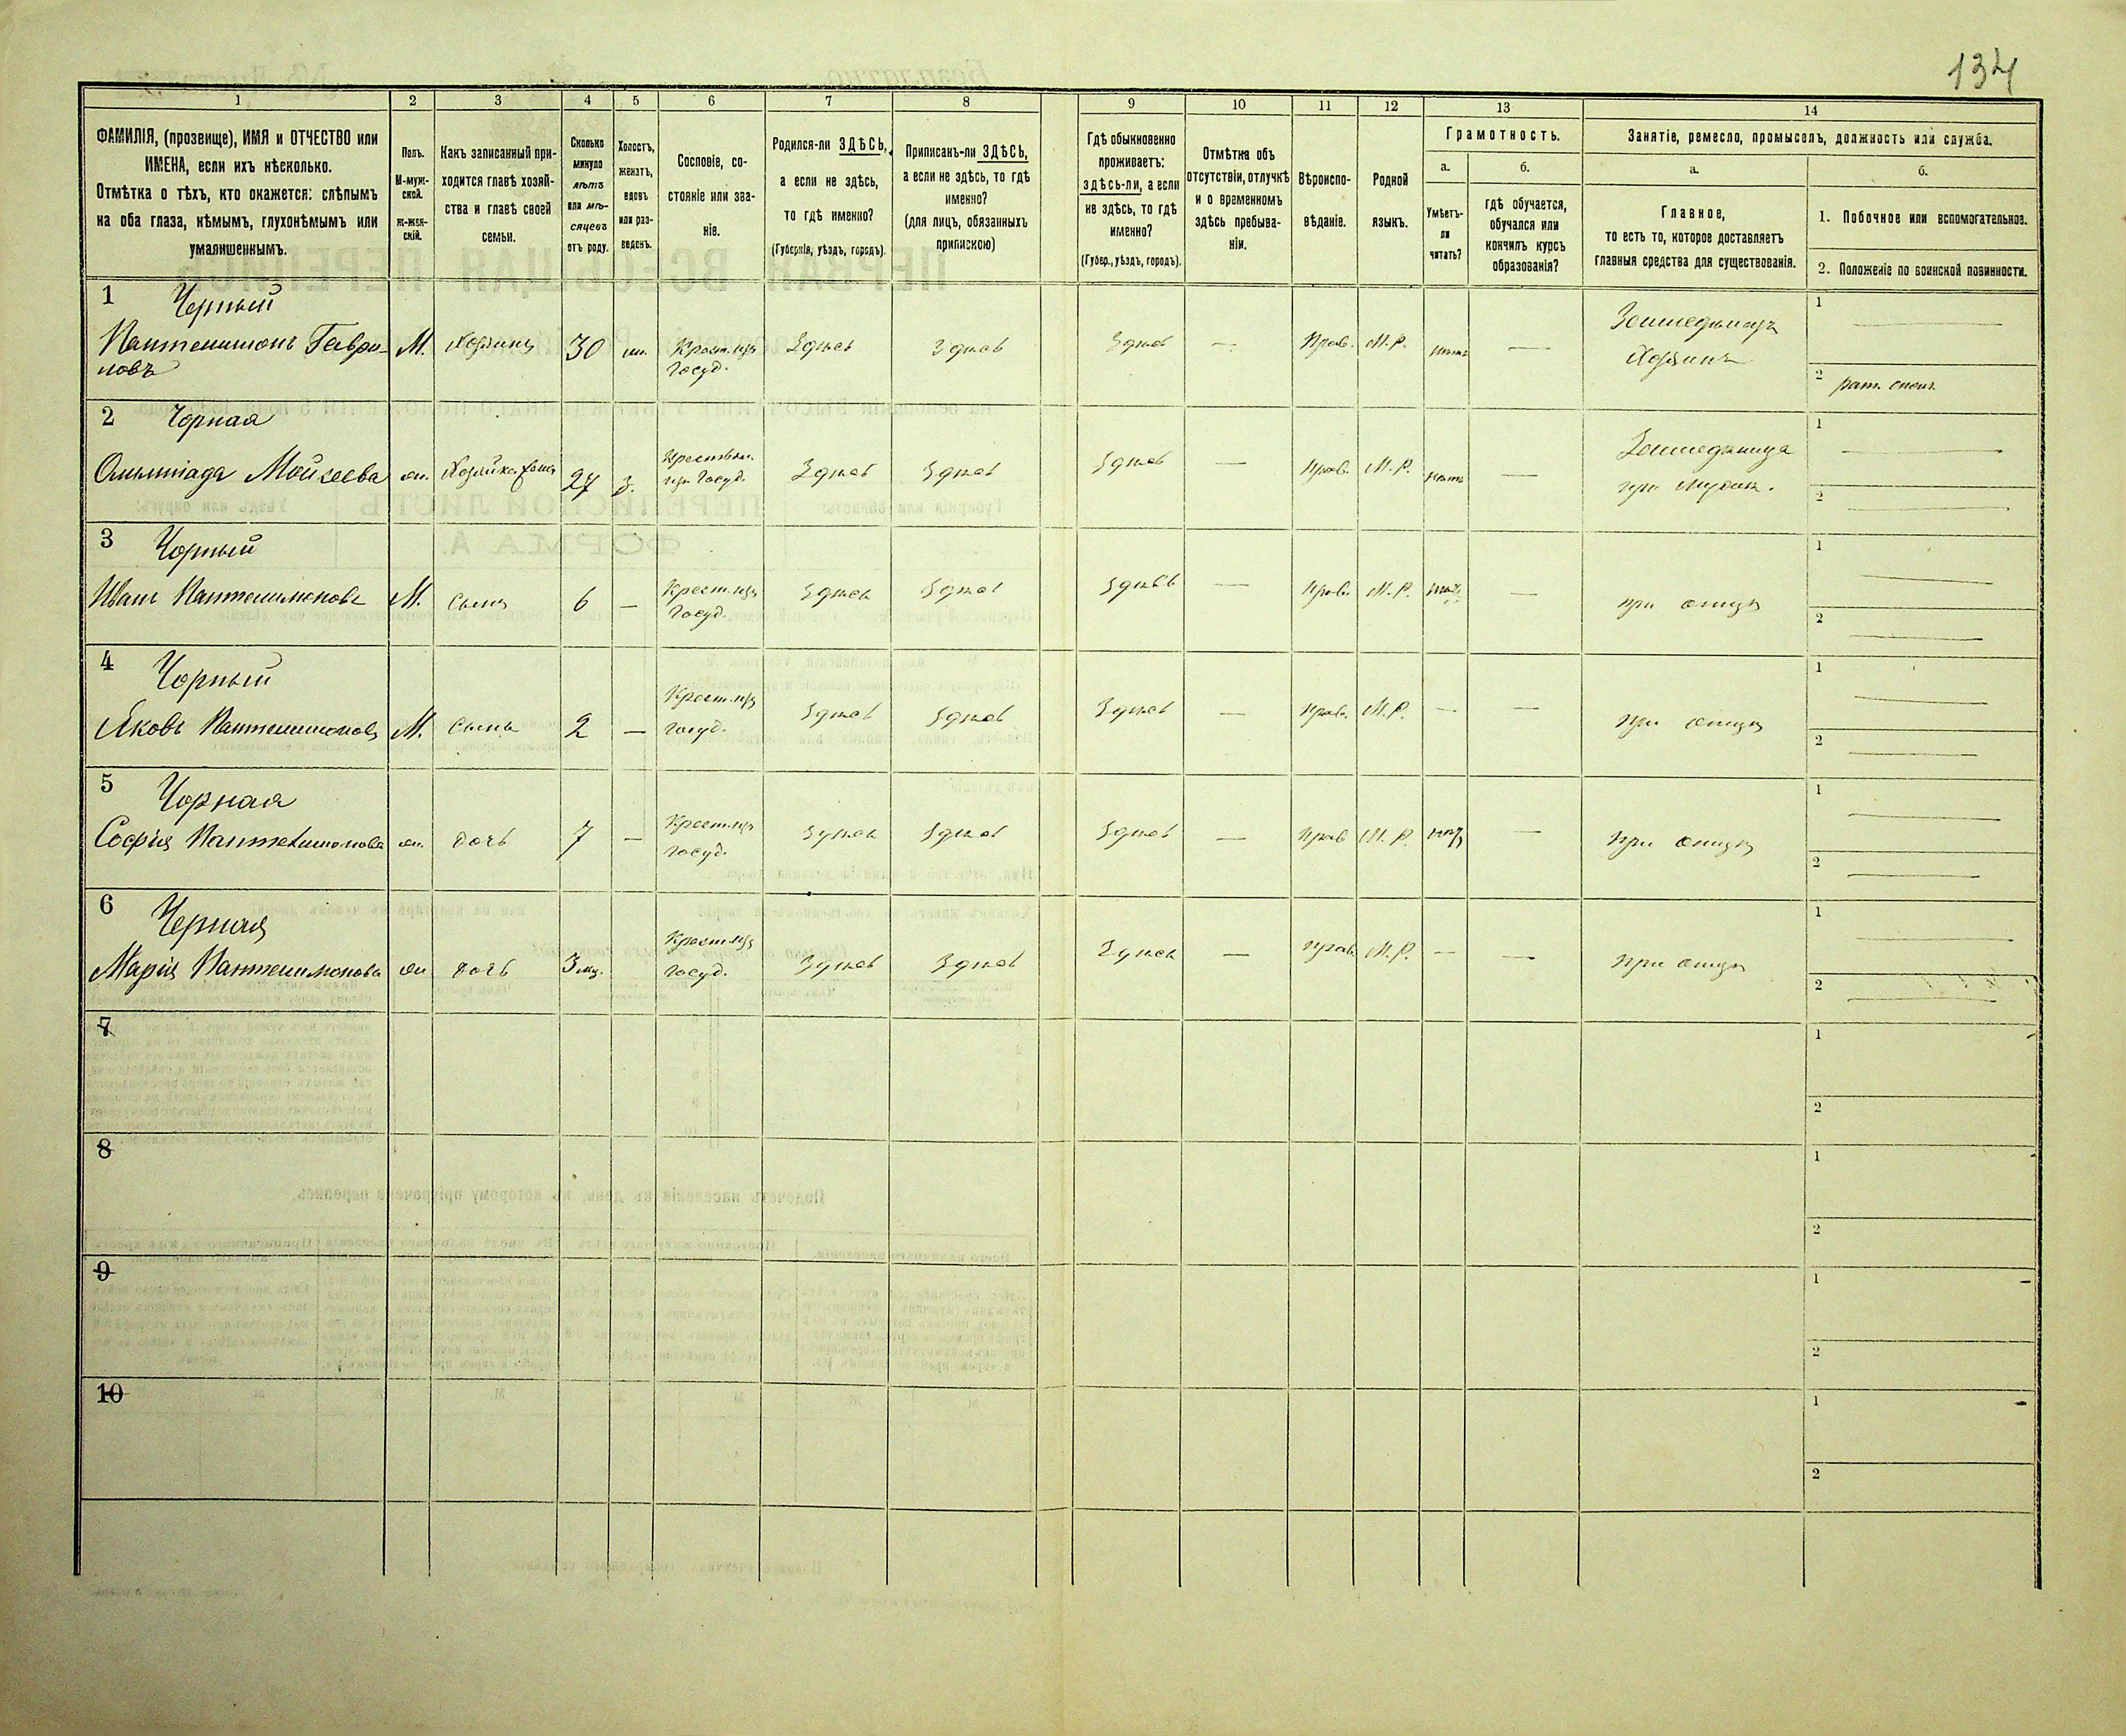 134
1 2 3 4 5 6 7 8 9 10 11 12 13 14
ФАМИЛІЯ, (прозвище), ИМЯ и ОТЧЕСТВО или
ИМЕНА, если ихъ нѣсколько.
Отмѣтка о тѣхъ, кто окажется: слѣпымъ
на оба глаза, нѣмымъ, глухонѣмымъ или
умалишеннымъ.
Полъ.
М-муж-
ской.
Ж-жен-
скій.
Какъ записанный при-
ходится главѣ хозяй-
ства и главѣ своей
семьи.
Сколько
минуло
лѣтъ
или мѣ-
сяцевъ
отъ роду.
Холостъ,
женатъ,
вдовъ
или раз-
веденъ.
Сословіе, со-
стояніе или зва-
ніе.
Родился-ли ЗДѢСЬ,
а если не здѣсь,
то гдѣ именно?
(Губернія, уѣздъ, городъ).
Приписанъ-ли ЗДѢСЬ,
а если не здѣсь, то гдѣ
именно?
(для лицъ, обязанныхъ
припискою)
Гдѣ обыкновенно
проживаетъ:
здѣсь-ли, а если
не здѣсь, то гдѣ
именно?
(Губер., уѣздъ, городъ).
Отмѣтка объ
отсутствіи, отлучкѣ
и о временномъ
здѣсь пребыва-
ніи.
Вѣроиспо-
вѣданіе.
Родной
языкъ.
Грамотность.
а.
Умѣетъ-
ли
читать?
б.
гдѣ обучается,
обучался или
кончилъ курсъ
образованія?
Занятіе, ремесло, промыселъ, должность или служба.
а.
Главное,
то есть то, которое доставляетъ
главныя средства для существованія.
б.
1. Побочное или вспомогательное.
2. Положеніе по воинской повинности.
1 Черный
Пантелимонъ Гаври-
ловъ
М. Хозяинъ 30 Крест. изъ
Госуд.
Здѣсь Здѣсь Здѣсь — Прав. М.Р. нѣтъ —
Земледѣлецъ
Хозяинъ
1 —
2 рат. опол.
2 Чорная
Олимпіада Мойсеева ж. Хозяйка жена 27 з.
изъ Госуд.
Здѣсь Здѣсь Здѣсь — Прав. М.Р. нѣтъ —
при мужѣ.
1 —
2 —
3 Чорный
Иванъ Пантелимоновъ М. сынъ 6 — Крест. изъ
Госуд.
Здѣсь Здѣсь Здѣсь — Прав. М.Р. нѣтъ —
при отцѣ
1 —
2 —
4 Чорный
Яковъ Пантелимоновъ М. сынъ 2 — Крест. изъ
Госуд.
Здѣсь Здѣсь Здѣсь — Прав. М.Р. — —
при отцѣ
1 —
2 —
5 Чорная
Софія Пантелимонова ж. дочь 7 — Крест. изъ
Госуд.
Здѣсь Здѣсь Здѣсь — Прав М.Р. нѣтъ —
при отцѣ
1 —
2 —
6 Черная
Марія Пантелимонова ж дочь 3 мц. Крест. изъ
Госуд.
Здѣсь Здѣсь Здѣсь — Прав. М.Р. — —
при отцѣ
1 —
2 —
7
1
2
8
1
2
9
1
2
10
1
2